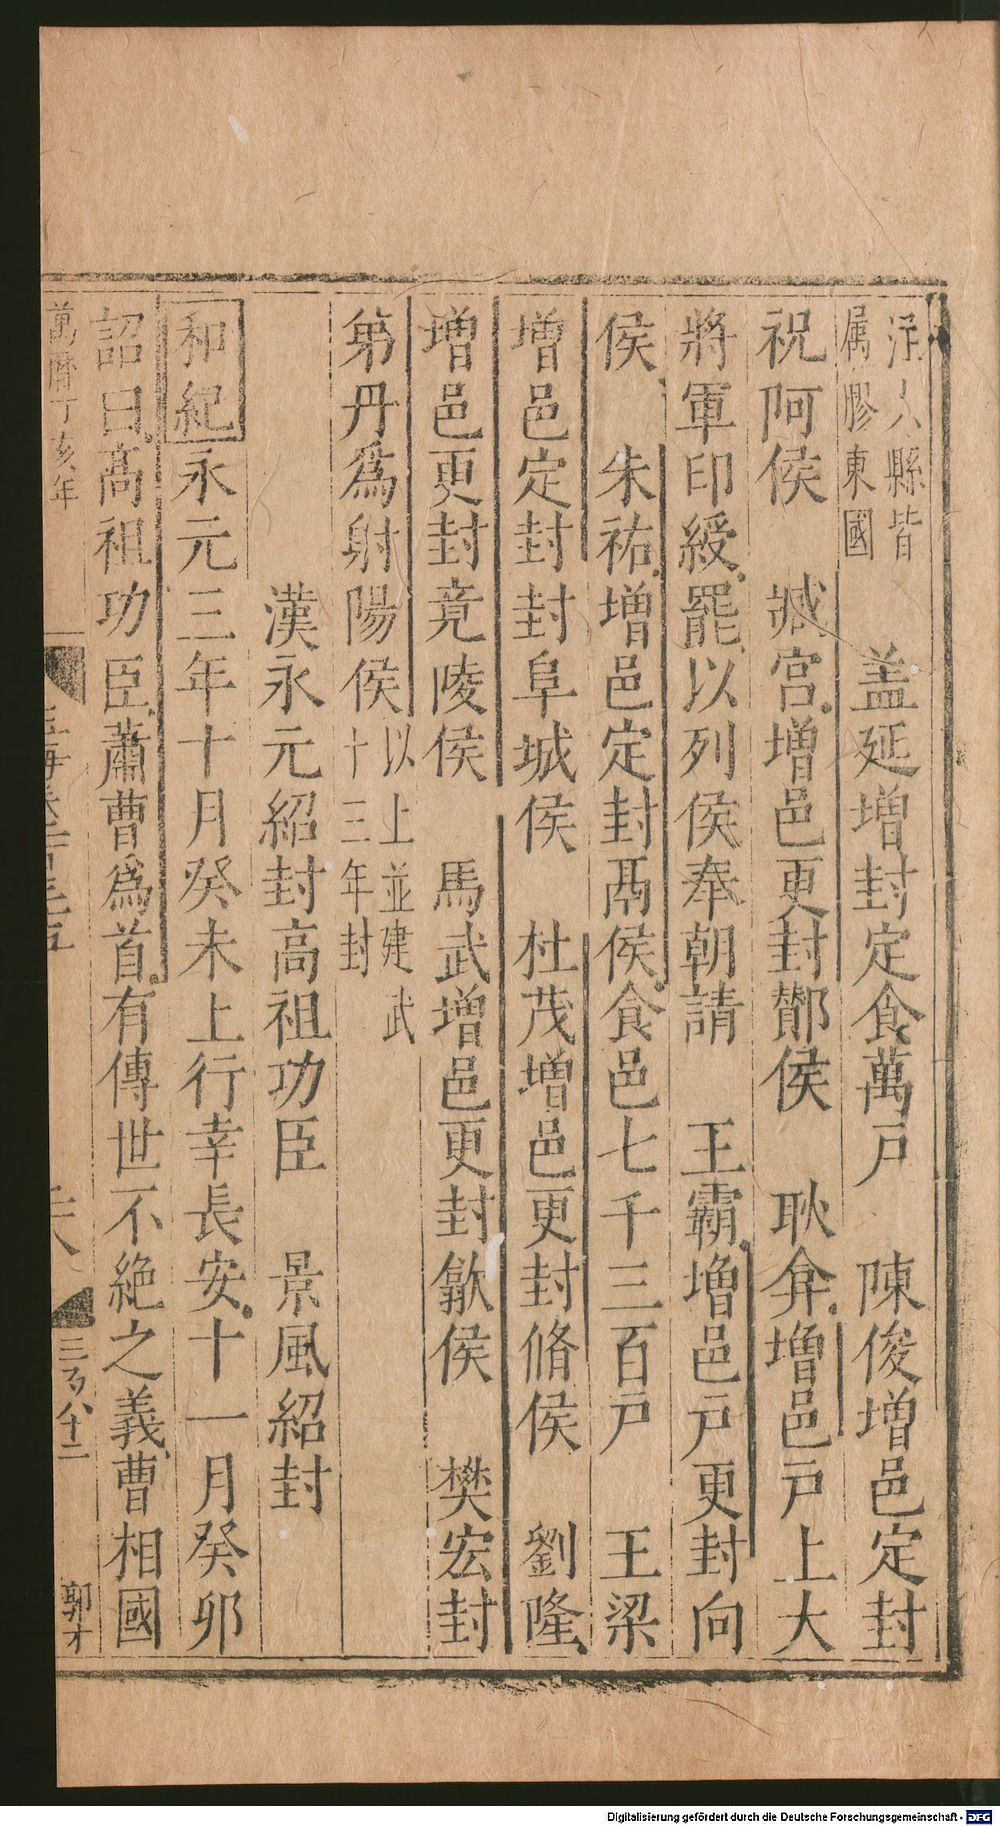 人縣皆
属膠東國
盖延增封定食萬戸　陳俊增邑定封
祝阿侯　臧宮增邑更封鄼侯　耿弇增邑戸上大
將軍印綬罷以列侯奉朝請　王霸增邑戸更封向
侯　朱祐增邑定封鬲侯食邑七千三百戸　王梁
增邑定封封阜城侯　杜茂增邑更封脩侯　劉隆
增邑更封竟陵侯　馬武增邑更封歙侯　樊宏封
第丹爲射陽侯
以上並建武
十三年封
漢永元紹封高祖功臣　景風紹封
和紀永元三年十月癸未上行幸長安十一月癸卯
詔曰高祖功臣蕭曹爲首有傳世不絶之義曹相國
萬曆丁亥年
三百八十二
郭才
Digitalisierung gefördert durch die Deutsche Forschungsgemeinschaft - DFG